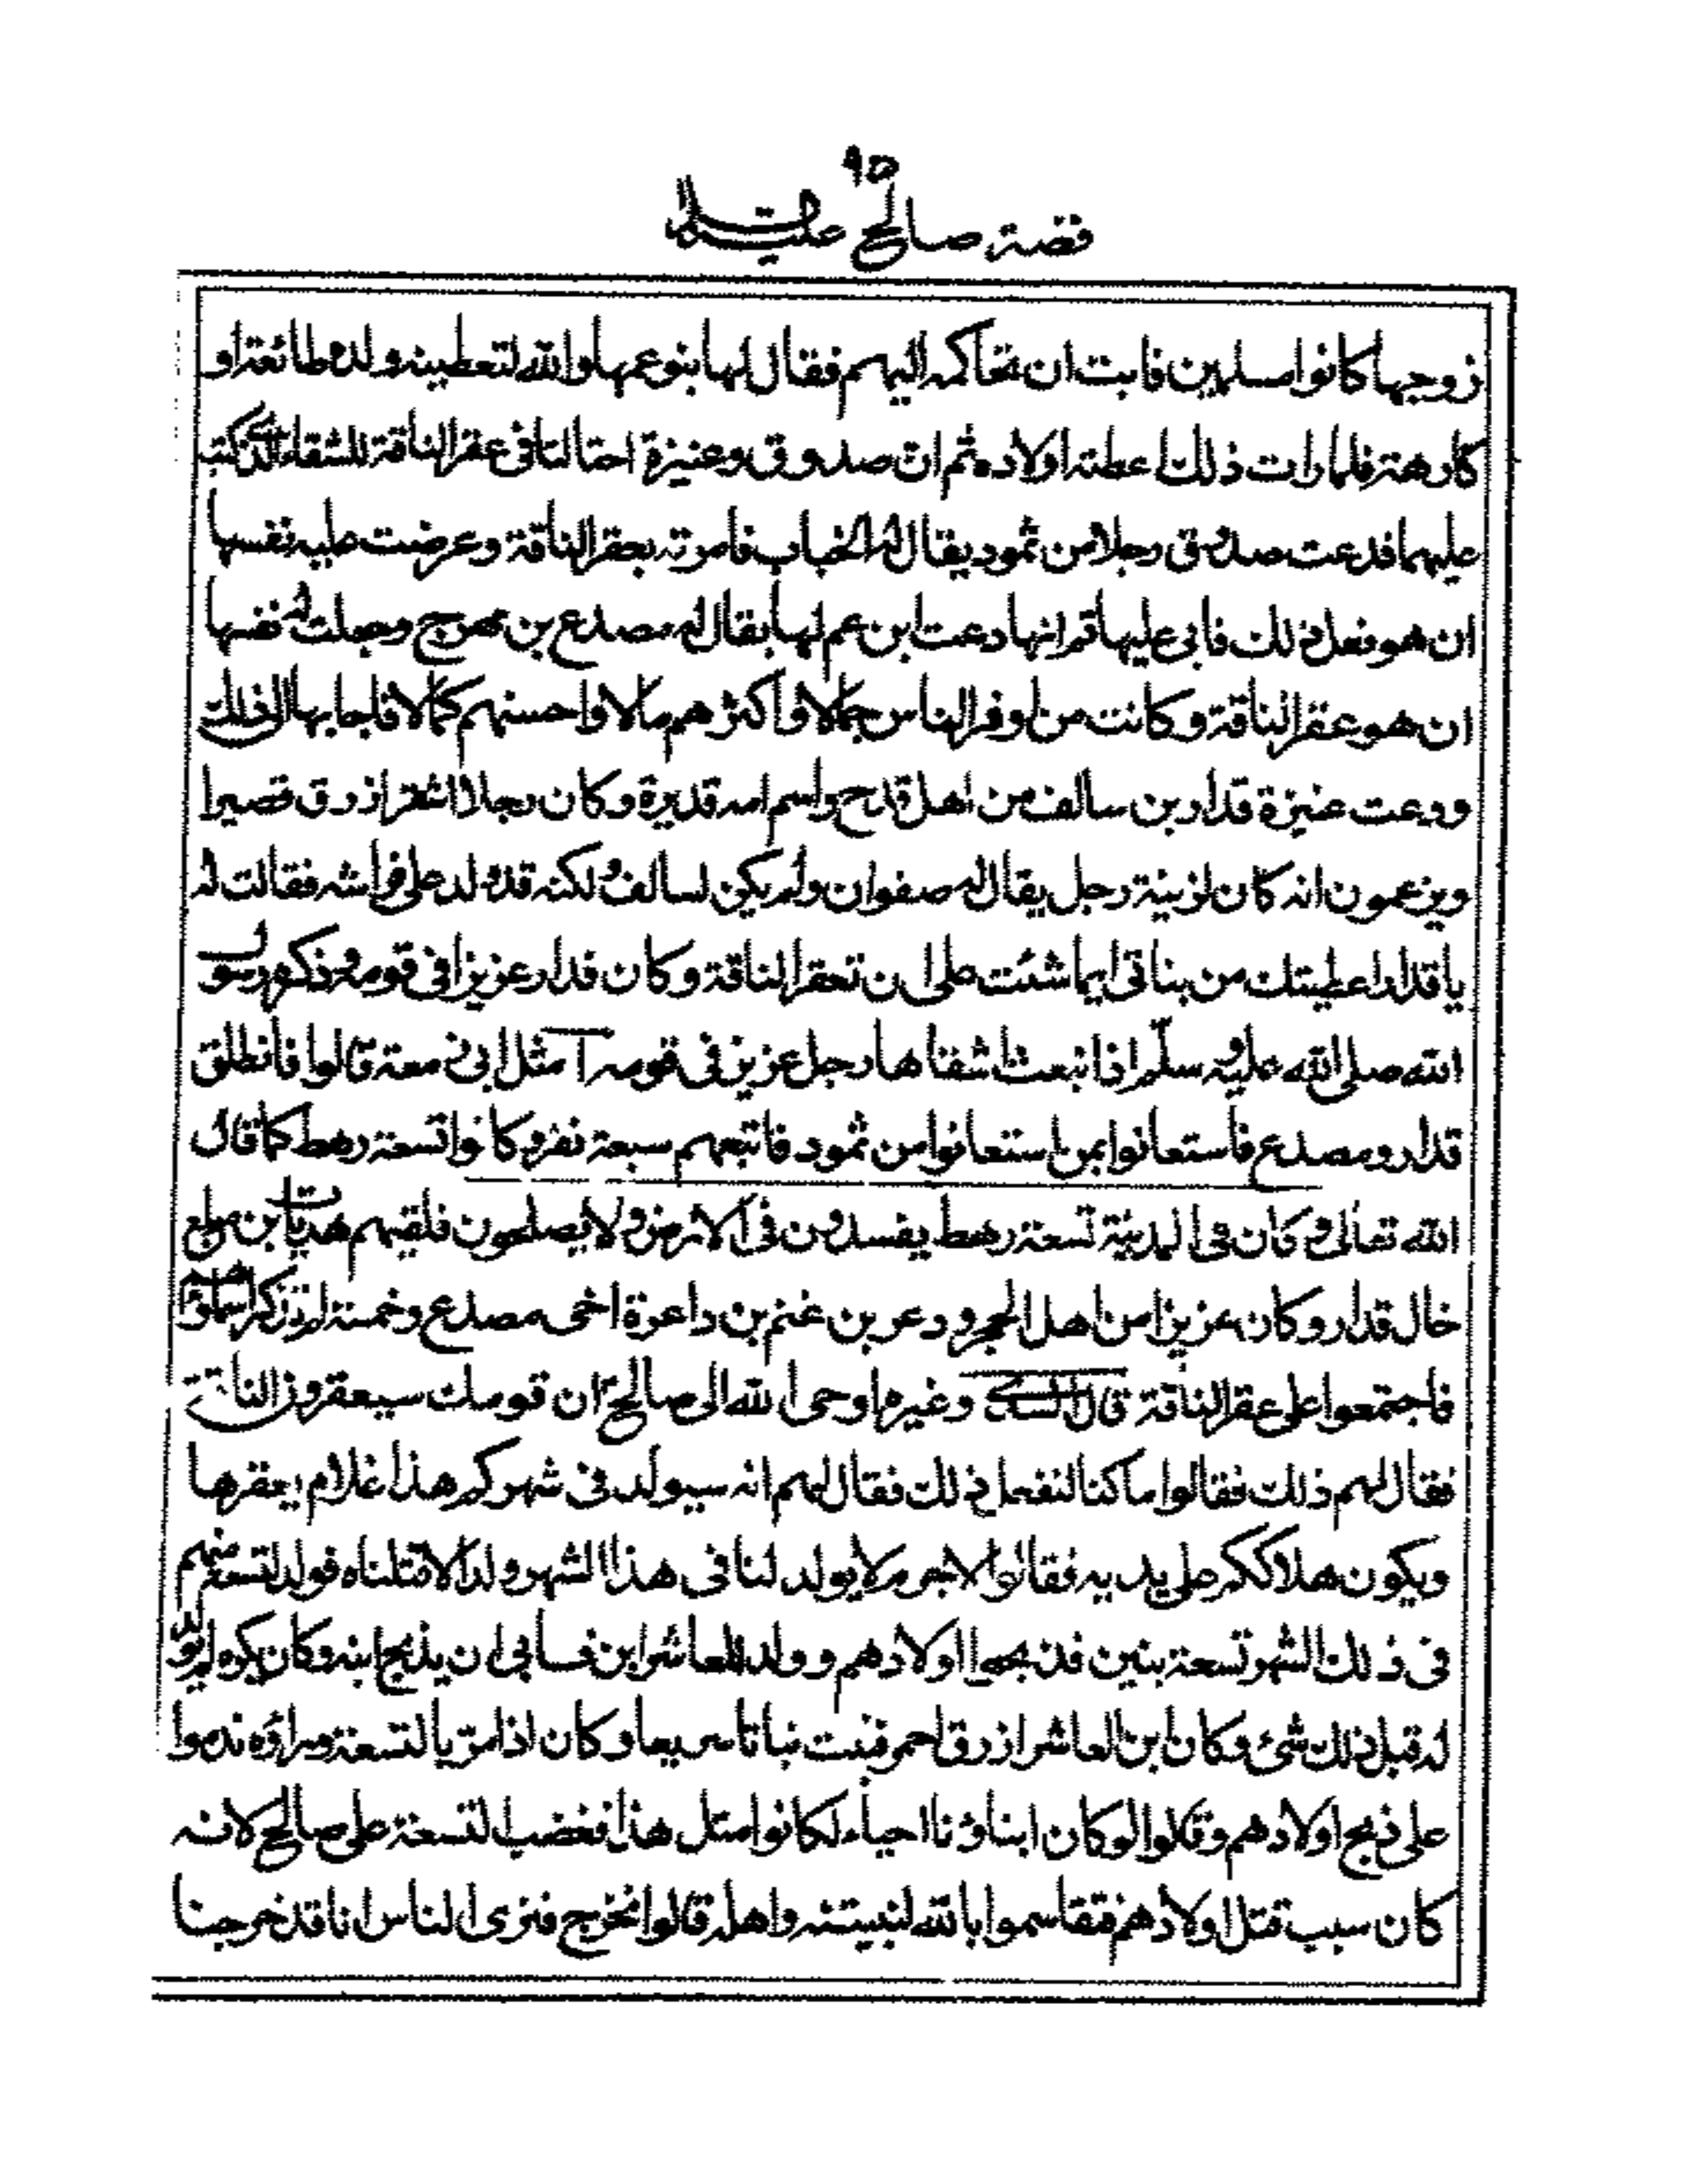 ٩٥
قصة صالح عليه السلام
زوجها كانوا مسلمين فابت ان تحاكمه اليهم فقال لها بنو عمها والله لتعطينه ولده طائعة او
كارهة فلما رات ذلك اعطته اولاده ثم ان صدوق وعنيزة احتالتا فى عقر الناقة للشقاء الذى كتب
عليهما فدعت صدوق رجلا من ثمود يقال له الحباب فامرته بعقر الناقة وعرضت عليه نفسها
ان هو فعل ذلك فابى عليها ثم انها دعت ابن عم لها يقال له مصدع بن مهرج وجعلت له نفسها
ان هو عقر الناقة وكانت من اوفر الناس جمالا و اكثرهم مالا واحسنهم كمالا فاجابها الى ذلك
ودعت عنيزة قدار بن سالف من اهل قدح واسم امه قديرة وكان رجلا اشقر ازرق قصيرا
ويزعمون انه كان لزنية رجل يقال له صفوان ولم يكن لسالف ولكنه قد ولد على فراشه فقالت له
يا قدار اعطيتك من بناتى ايما شئت على ان تعقر الناقة وكان قدار عزيزا فى قومه وذكر رسول
الله صلى الله عليه وسلم اذا نبعث اشقاها رجل عزيز فى قومه مثل ابى زمعة قالوا فانطلق
قدار و مصدع فاستعانوا بمن استعانوا من ثمود فاتبعهم سبعة نفر وكانوا تسعة رهط كما قال
الله تعالى وكان فى المدينة تسعة رهط يفسدون فى الارض ولا يصلحون فلقيهم بن
خال قدار وكان عزيزا من اهل الحجر و دعر بن غنم بن داعرة اخى مصدع وخمسة لم تذكر اسماؤهم
فاجتمعوا على عقر الناقة قال السدى وغيره اوحى الله الى صالح ان قومك سيعقرون الناقة
فقال لهم ذلك فقالوا ما كنا لنفعل ذلك فقال لهم انه سيولد فى شهركم هذا غلام يعقرها
ويكون هلاككم على يديه فقالوا لاجرم لا يولد لنا فى هذا الشهر ولد الا قتلناه فولد لتسعة منهم
فى ذلك الشهر تسعة بنين فذبحوا اولادهم وولد للعاشر ابن فابى ان يذبح ابنه وكان يكره لم يولد
له قبل ذلك شئ وكان ابن العاشر ازرق احمر فنبت نباتا سريعا وكان اذا مر بالتسعة وراؤه ندموا
على ذبح اولادهم وقالوا لو كان ابناؤنا احياء لكانوا مثل هذا فغضب التسعة على صالح لانه
كان سبب قتل اولادهم فتقاسموا بالله لنبيتنه واهله قالوا نخرج فنرى الناس انا قد خرجنا